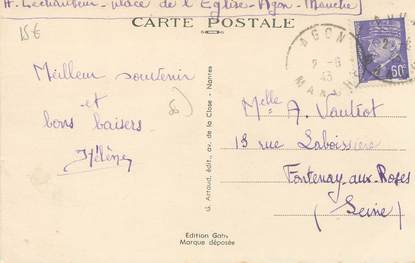 H. Lechanteur - place de l'Eglise - Agon - (Manche)
15€
CARTE POSTALE
AGON
2 - 6
43
MANCHE
60c
Meilleur souvenir
et
bons baisers.
Hélène
G. Artaud, édit., av. de la Close - Nantes
Melle A. Vautiot
13 rue Laboissière
Fontenay-aux-Roses
(Seine)
Edition Gaby
Marque déposée